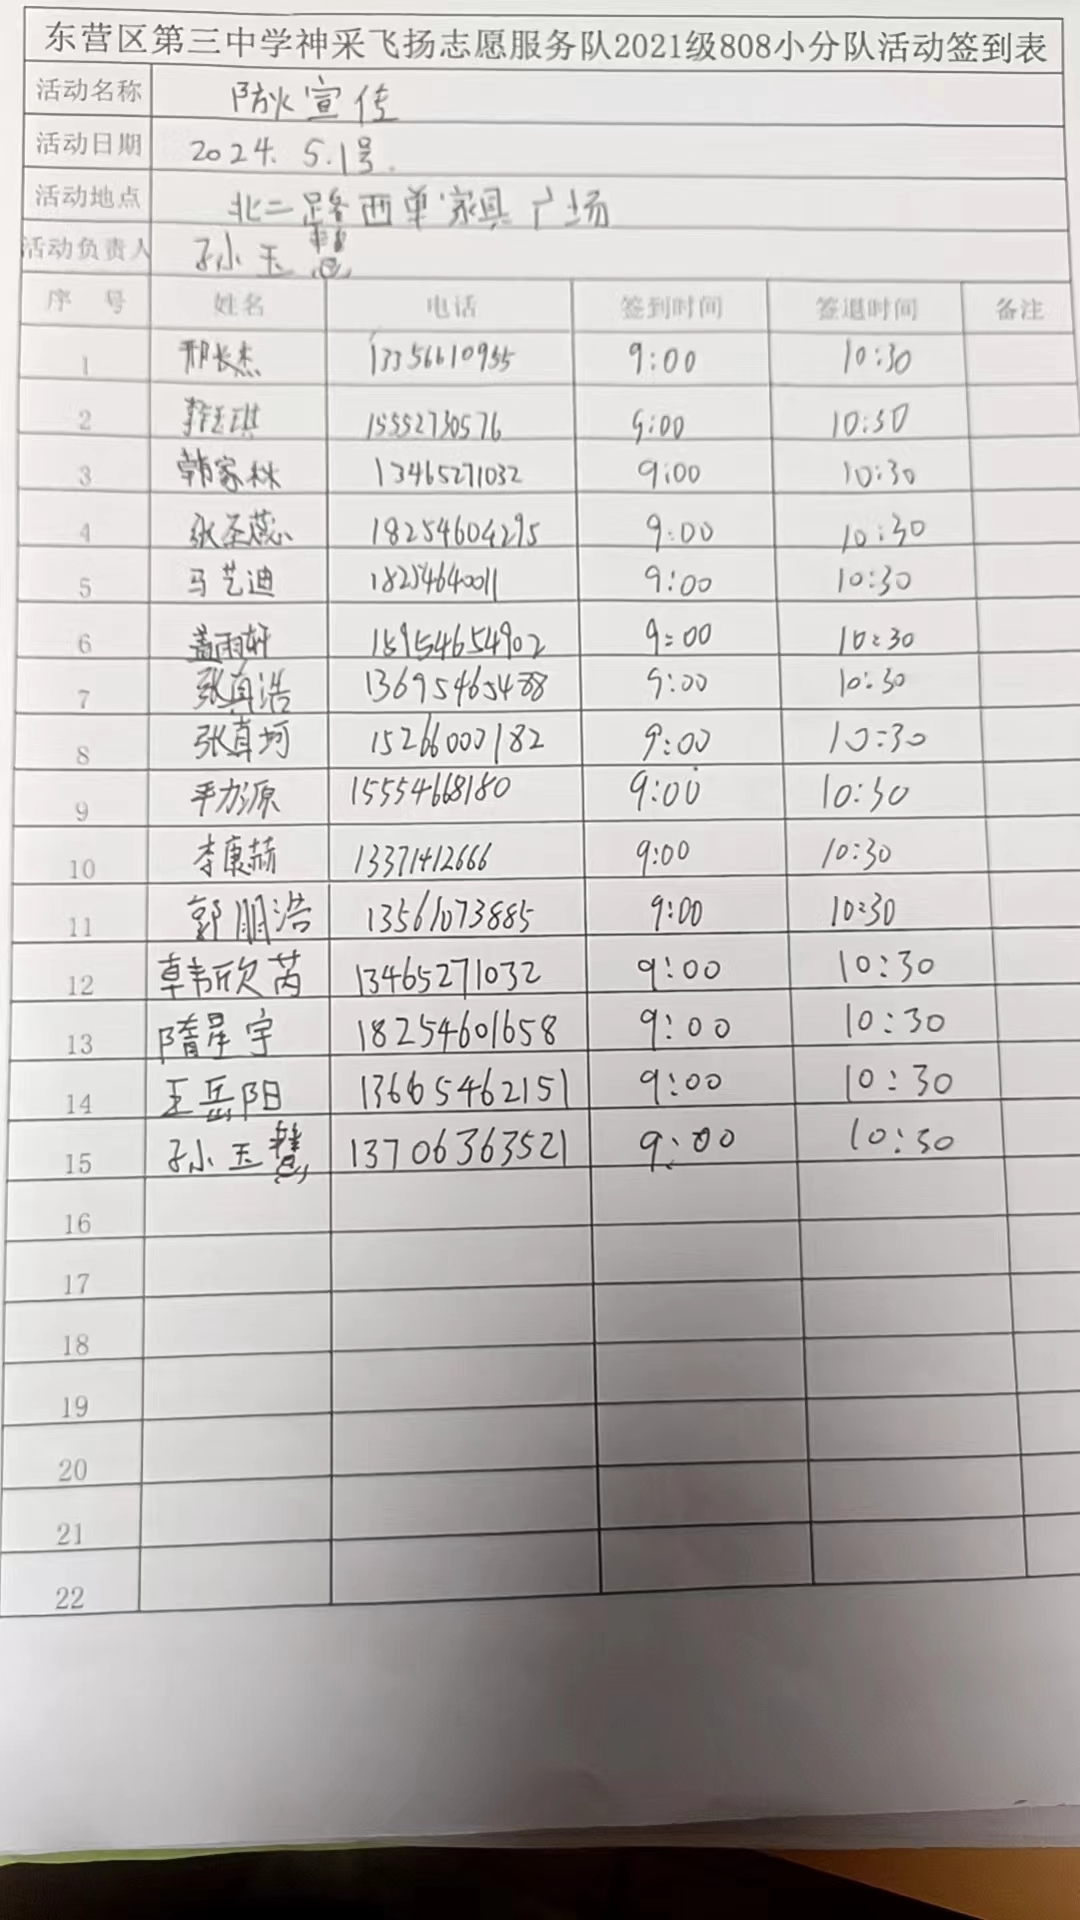 东营区第三中学神采飞扬志愿服务队2021级808小分队活动签到表
活动名称 防火宣传
活动日期 2024.5.1号.
活动地点 北二路西单家具广场
活动负责人 孙玉慧
序 号 姓名 电话 签到时间 签退时间 备注
1 邢长杰 13356610955 9:00 10:30
2 15552730576 9:00 10:30
3 韩家林 13465271032 9:00 10:30
4 张圣蕊 18254604295 9:00 10:30
5 马艺迪 18254640011 9:00 10:30
6 盖雨轩 18954654902 9:00 10:30
7 张真浩 13695465488 9:00 10:30
8 张真珂 15266000182 9:00 10:30
9 平力源 15554668180 9:00 10:30
10 李康赫 13371412666 9:00 10:30
11 郭朋浩 13561073885 9:00 10:30
12 韩欣芮 13465271032 9:00 10:30
13 隋星宇 18254601658 9:00 10:30
14 王岳阳 13665462151 9:00 10:30
15 孙玉慧 13706363521 9:00 10:30
16
17
18
19
20
21
22